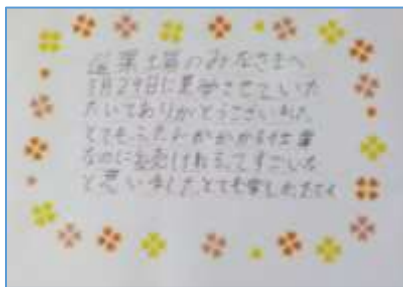 産業土質のみなさまへ
月29日に見学させていた
だいてありがとうございました。
とてもふたんがかかる仕事
なのに
すごいな
と思いました。とても楽しかったです